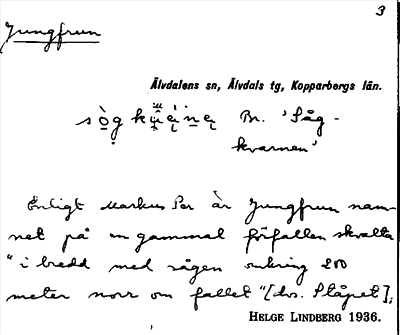 3
Jungfrun
Älvdalens sn, Älvdals tg, Kopparbergs län.
Bn. 'Såg-
kvarnen'
Enligt Markus Per är Jungfrun nam-
net på en gammal förfallen skvalta
"i bredd med sågen omkring 200
meter norr om fallet" [dvs. Ståpet],
HELGE LINDBERG 1936.